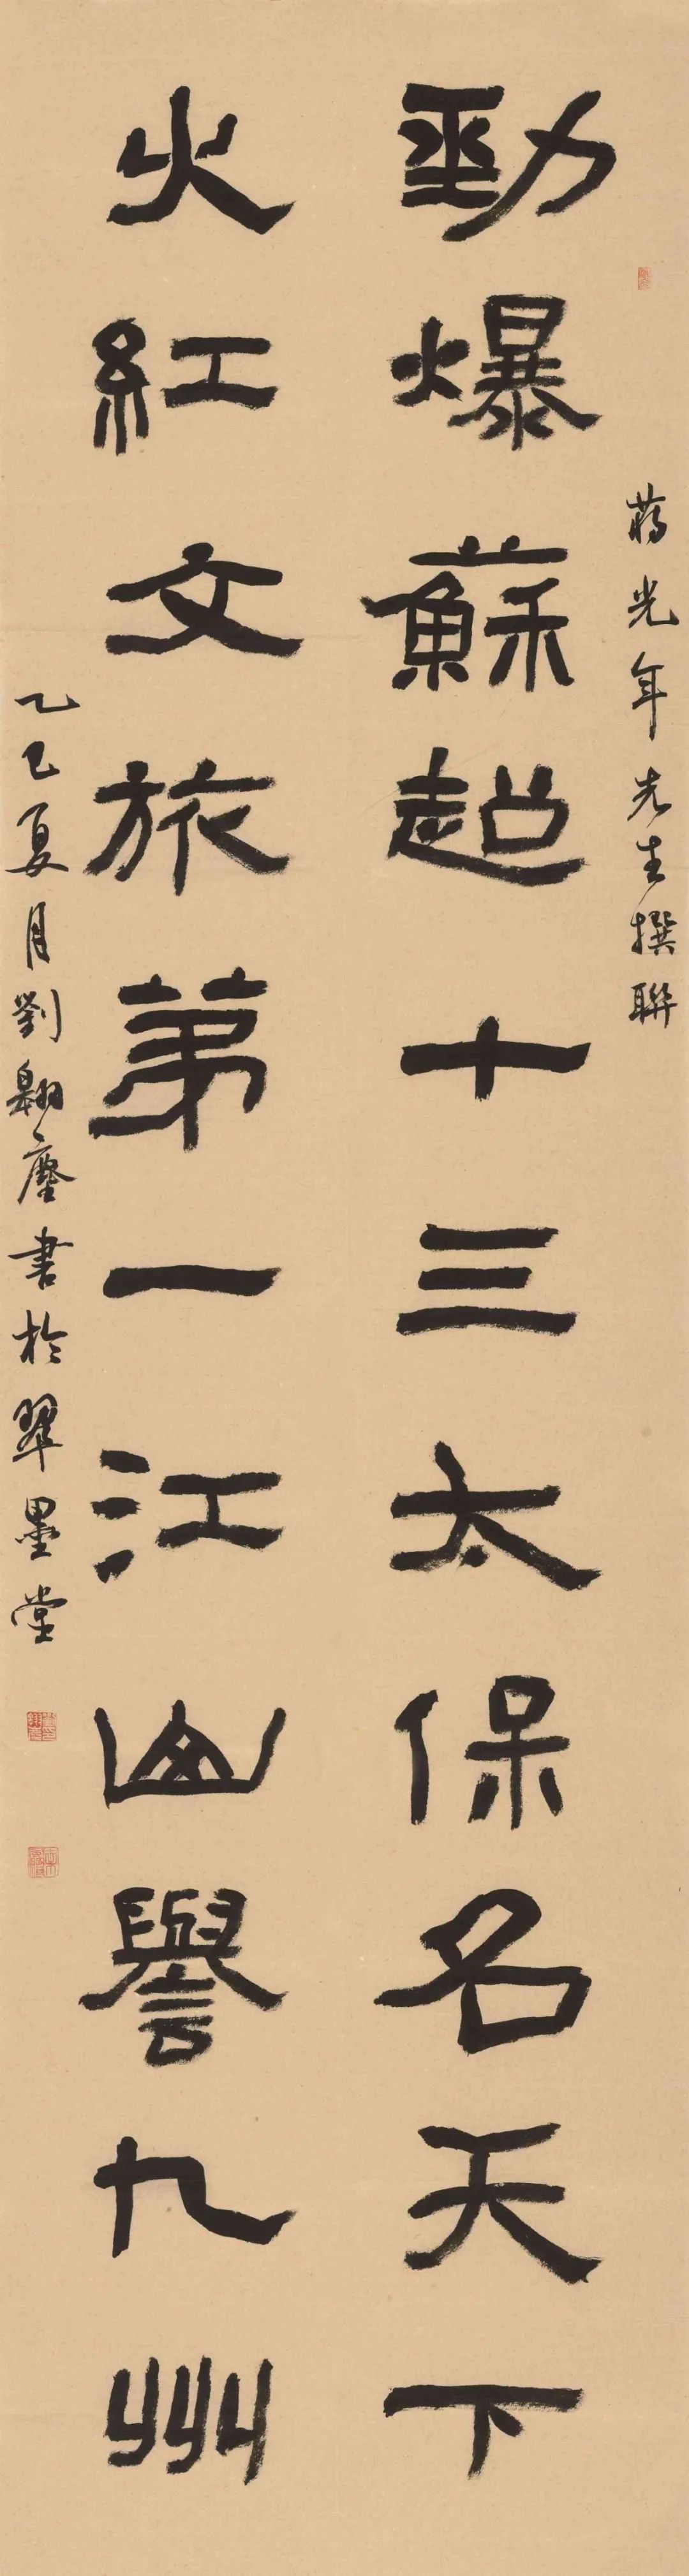 蔣光年先生撰聯
勁爆蘇超十三太保名天下
火紅文旅第一江山譽九州
乙巳夏月劉翱塵書於翠墨堂